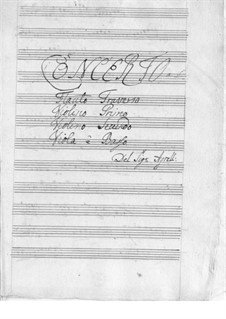 CONCERTO
Flauto Traverso
Violino Primo
Violino Secundo
Viola è Basso
Del Sigr.